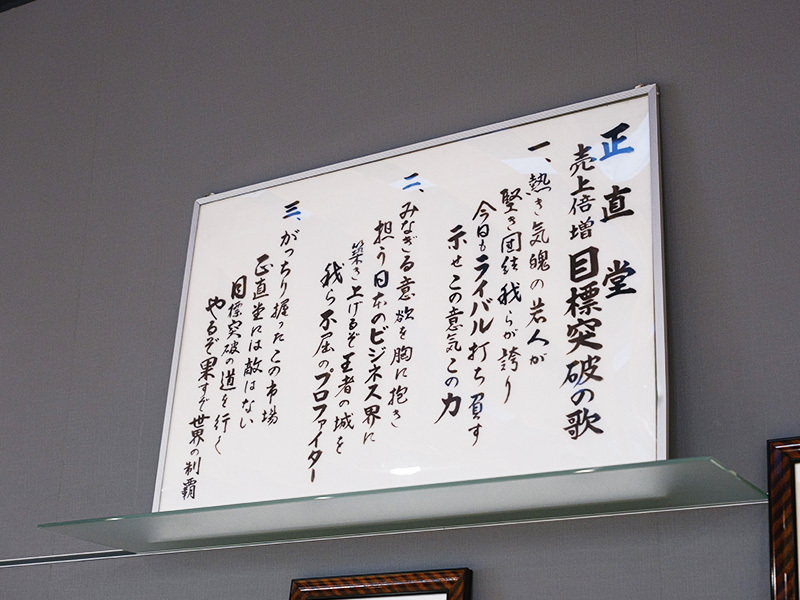 正直堂
売上倍増目標突破の歌
一、熱き気魄の若人が
堅き団結我らが誇り
今日もライバル打ち負す
示せこの意気この力
二、みなぎる意欲を胸に抱き
担う日本のビジネス界に
築き上げるぞ王者の城を
我ら不屈のプロファイター
三、がっちり握ったこの市場
正直堂には敵はない
目標突破の道を行く
やるぞ果すぞ世界の制覇